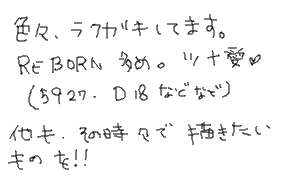 色々、ラクガキしてます。
REBORN 多め。ツナ愛♥
(5927. D18 などなど)
他も、その時々で描きたい
ものを!!